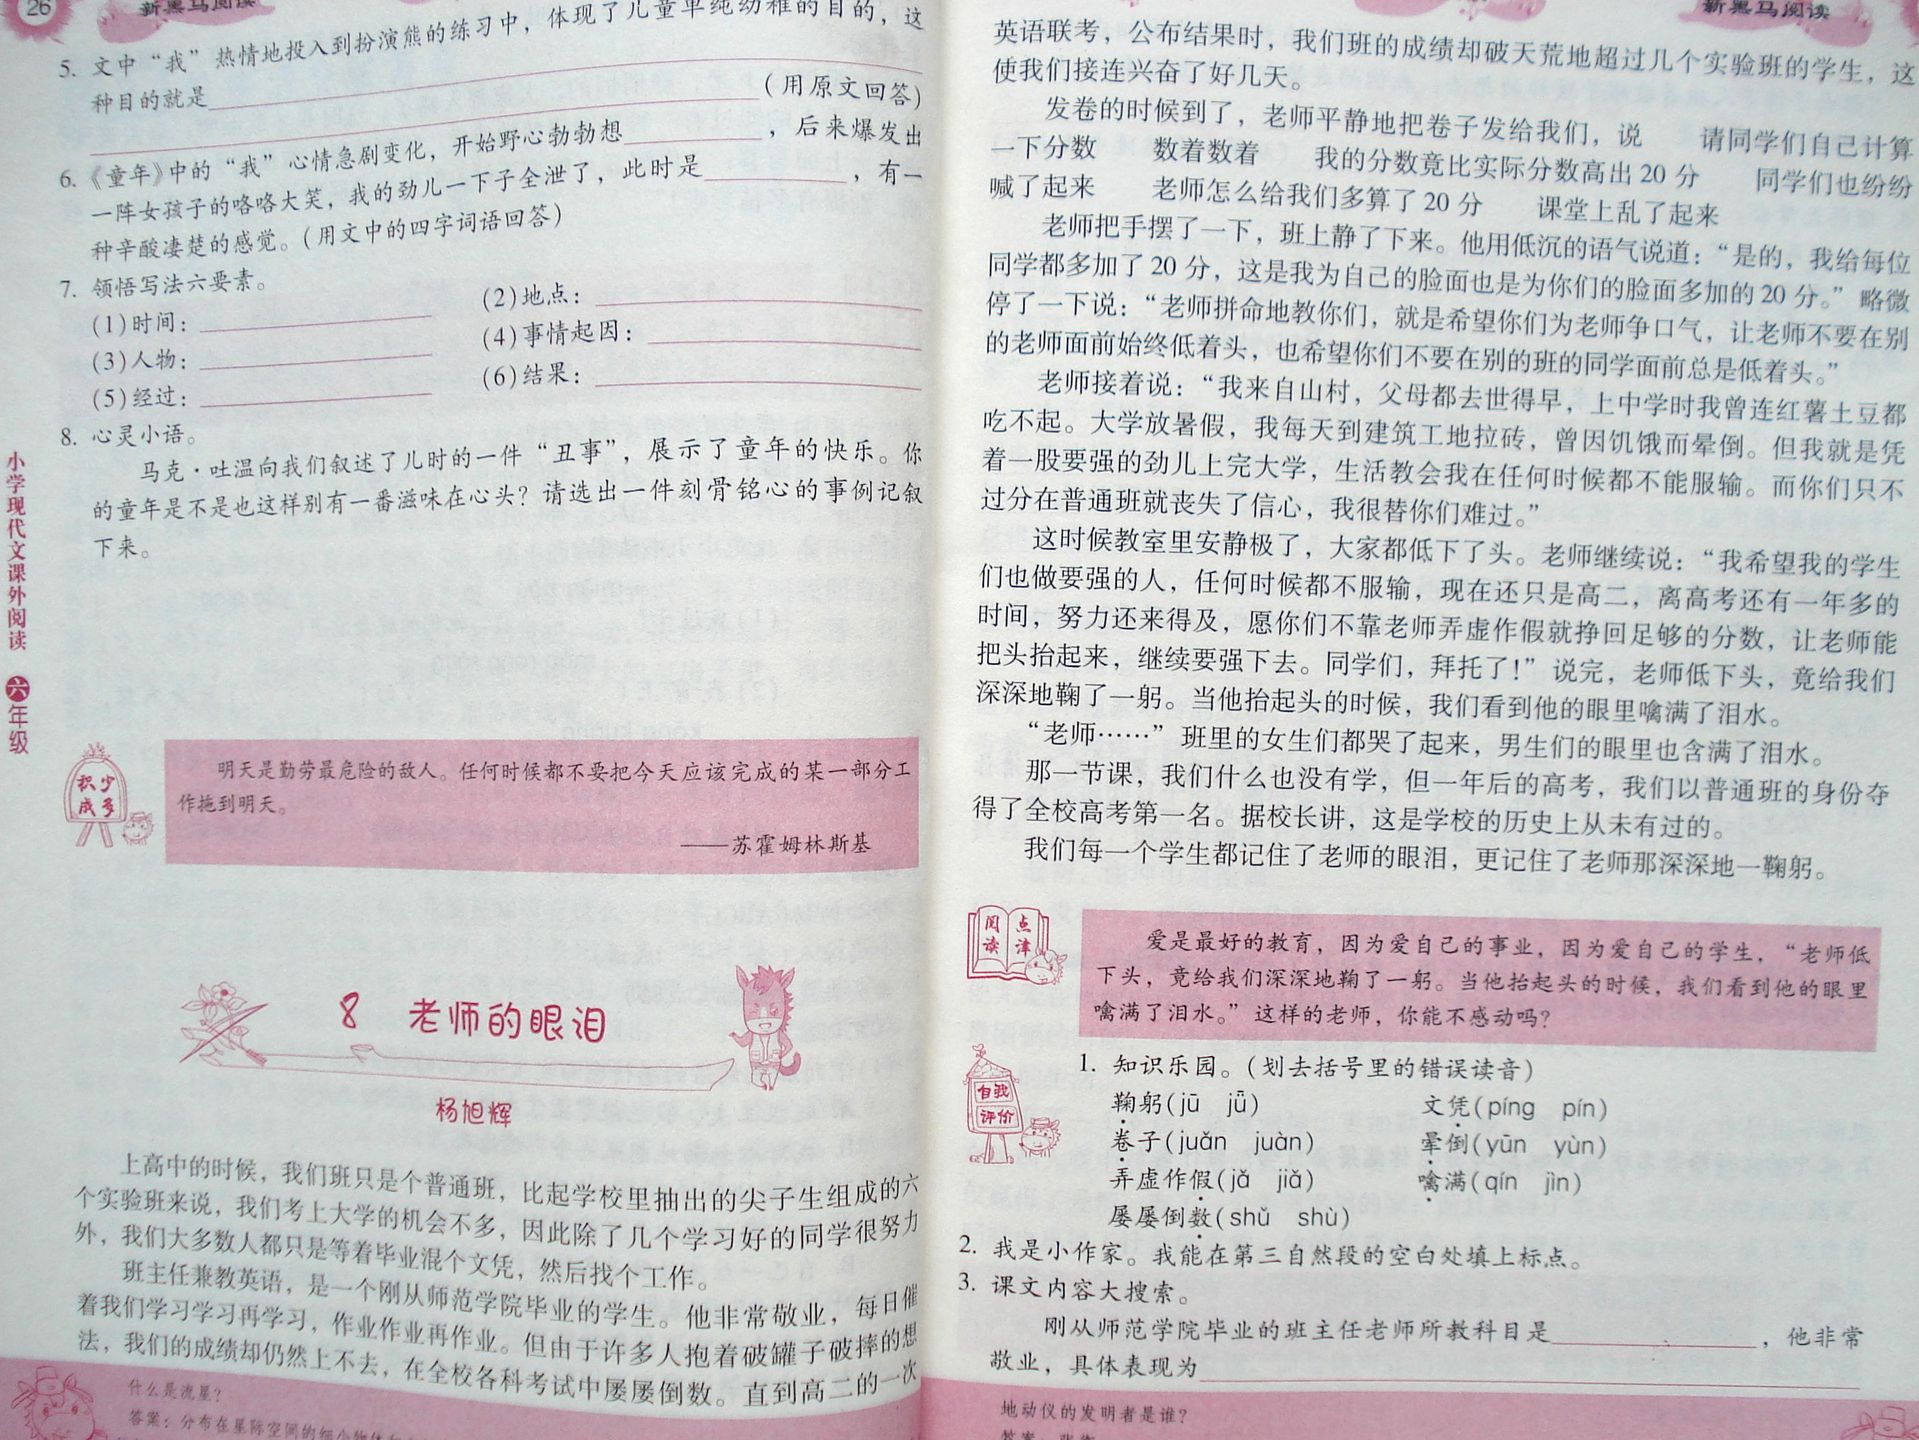 26
新黑马阅读
5. 文中“我”热情地投入到扮演熊的练习中，体现了儿童单纯幼稚的目的，这
种目的就是
(用原文回答)
6.《童年》中的“我”心情急剧变化，开始野心勃勃想 ，后来爆发出
一阵女孩子的咯咯大笑，我的劲儿一下子全泄了，此时是 ，有一
种辛酸凄楚的感觉。(用文中的四字词语回答)
7. 领悟写法六要素。
(1)时间： (2)地点：
(3)人物： (4)事情起因：
(5)经过： (6)结果：
8. 心灵小语。
马克·吐温向我们叙述了儿时的一件“丑事”，展示了童年的快乐。你
的童年是不是也这样别有一番滋味在心头？请选出一件刻骨铭心的事例记叙
下来。
小学现代文课外阅读 六年级
积少
成多
明天是勤劳最危险的敌人。任何时候都不要把今天应该完成的某一部分工
作拖到明天。
——苏霍姆林斯基
8 老师的眼泪
杨旭辉
上高中的时候，我们班只是个普通班，比起学校里抽出的尖子生组成的六
个实验班来说，我们考上大学的机会不多，因此除了几个学习好的同学很努力
外，我们大多数人都只是等着毕业混个文凭，然后找个工作。
班主任兼教英语，是一个刚从师范学院毕业的学生。他非常敬业，每日催
着我们学习学习再学习，作业作业再作业。但由于许多人抱着破罐子破摔的想
法，我们的成绩却仍然上不去，在全校各科考试中屡屡倒数。直到高二的一次
什么是流星？
答案：分布在星际空间的细小物体
新黑马阅读
英语联考，公布结果时，我们班的成绩却破天荒地超过几个实验班的学生，这
使我们接连兴奋了好几天。
发卷的时候到了，老师平静地把卷子发给我们，说 请同学们自己计算
一下分数 数着数着 我的分数竟比实际分数高出 20 分 同学们也纷纷
喊了起来 老师怎么给我们多算了 20 分 课堂上乱了起来
老师把手摆了一下，班上静了下来。他用低沉的语气说道：“是的，我给每位
同学都多加了 20 分，这是我为自己的脸面也是为你们的脸面多加的 20 分。”略微
停了一下说：“老师拼命地教你们，就是希望你们为老师争口气，让老师不要在别
的老师面前始终低着头，也希望你们不要在别的班的同学面前总是低着头。”
老师接着说：“我来自山村，父母都去世得早，上中学时我曾连红薯土豆都
吃不起。大学放暑假，我每天到建筑工地拉砖，曾因饥饿而晕倒。但我就是凭
着一股要强的劲儿上完大学，生活教会我在任何时候都不能服输。而你们只不
过分在普通班就丧失了信心，我很替你们难过。”
这时候教室里安静极了，大家都低下了头。老师继续说：“我希望我的学生
们也做要强的人，任何时候都不服输，现在还只是高二，离高考还有一年多的
时间，努力还来得及，愿你们不靠老师弄虚作假就挣回足够的分数，让老师能
把头抬起来，继续要强下去。同学们，拜托了！”说完，老师低下头，竟给我们
深深地鞠了一躬。当他抬起头的时候，我们看到他的眼里噙满了泪水。
“老师……”班里的女生们都哭了起来，男生们的眼里也含满了泪水。
那一节课，我们什么也没有学，但一年后的高考，我们以普通班的身份夺
得了全校高考第一名。据校长讲，这是学校的历史上从未有过的。
我们每一个学生都记住了老师的眼泪，更记住了老师那深深地一鞠躬。
阅读点津
爱是最好的教育，因为爱自己的事业，因为爱自己的学生，“老师低
下头，竟给我们深深地鞠了一躬。当他抬起头的时候，我们看到他的眼里
噙满了泪水。”这样的老师，你能不感动吗？
自我
评价
1. 知识乐园。(划去括号里的错误读音)
鞠躬(jū jǖ) 文凭(píng pín)
卷子(juǎn juàn) 晕倒(yūn yùn)
弄虚作假(jǎ jiǎ) 噙满(qín jìn)
屡屡倒数(shǔ shù)
2. 我是小作家。我能在第三自然段的空白处填上标点。
3. 课文内容大搜索。
刚从师范学院毕业的班主任老师所教科目是 ，他非常
敬业，具体表现为
地动仪的发明者是谁？